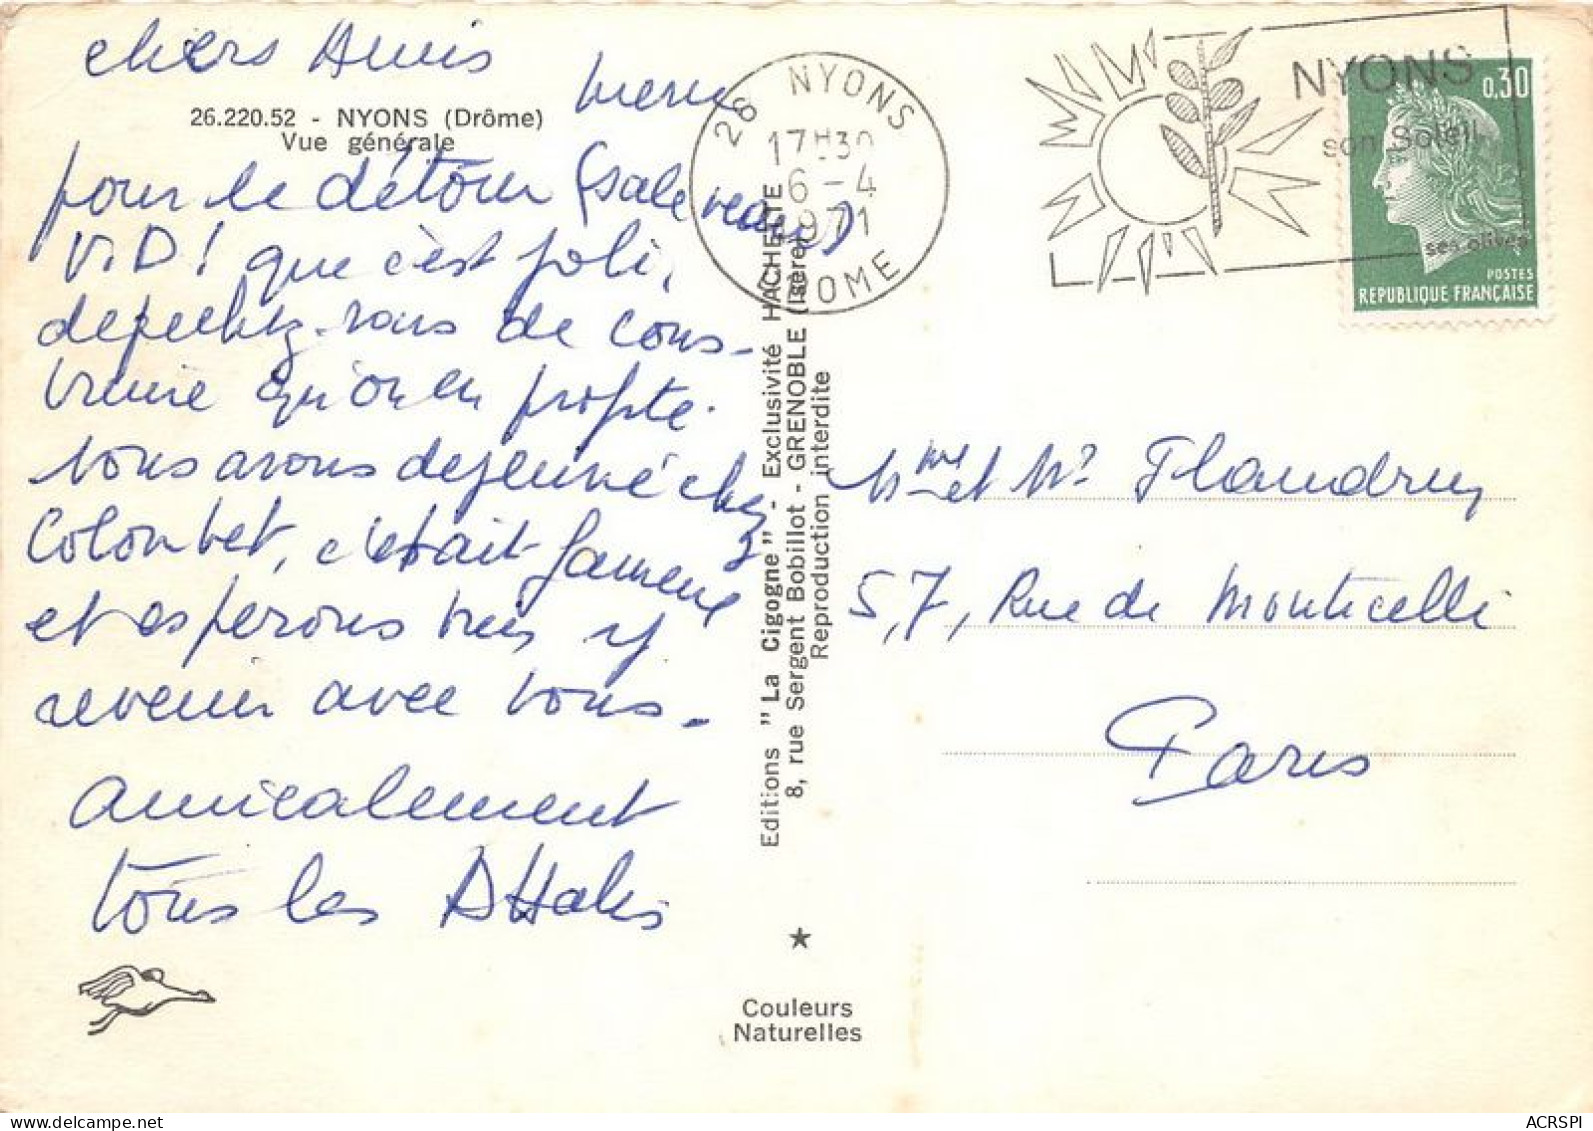 chers Amis
merci
26.220.52 - NYONS (Drôme)
Vue générale
pour le détour (sale
V.D! que c'est joli,
depechez-vous de cons-
truire qu'on en profite.
nous avons dejeuné chez
Colombet, c'était fameux
et esperons bien y
revenir avec vous.
amicalement
tous les
28 NYONS
17H30
6-4
1971
DROME
NYONS
son Soleil
ses olives
0,30
POSTES
REPUBLIQUE FRANÇAISE
Editions "La Cigogne" - Exclusivité HACHETTE
8, rue Sergent Bobillot - GRENOBLE (Isère)
Reproduction interdite
Mme et Mr Flandrin
57, Rue de Monticelli
Paris
★
Couleurs
Naturelles
ACRSPI